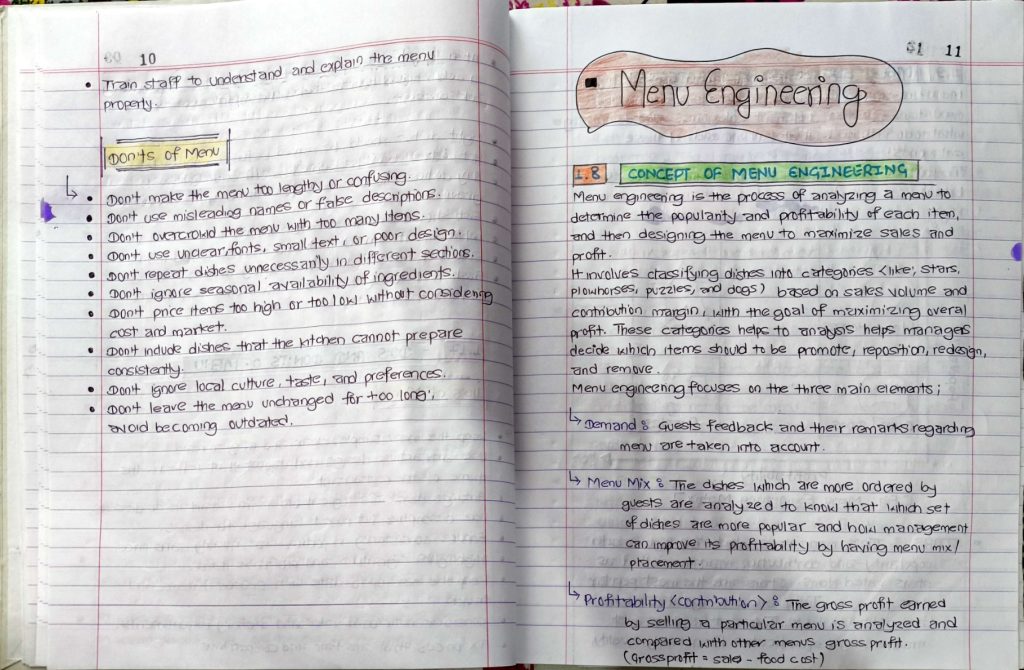 10
• Train staff to understand and explain the menu
properly.
Don'ts of Menu
↳ • Don't make the menu too lengthy or confusing.
• Don't use misleading names or false descriptions.
• Don't overcrowd the menu with too many items.
• Don't use unclear, fonts, small text, or poor design.
• Don't repeat dishes unnecessarily in different sections.
• Don't ignore seasonal availability of ingredients.
• Don't price items too high or too low without considering
cost and market.
• Don't include dishes that the kitchen cannot prepare
consistently.
• Don't ignore local culture, taste, and preferences.
• Don't leave the menu unchanged for too long;
avoid becoming outdated.
11
Menu Engineering
1.8 CONCEPT OF MENU ENGINEERING
Menu engineering is the process of analyzing a menu to
determine the popularity and profitability of each item,
and then designing the menu to maximize sales and
profit.
It involves classifying dishes into categories <like, stars,
plowhorses, puzzles, and dogs) based on sales volume and
contribution margin, with the goal of maximizing overal
profit. These categories helps to analysis helps manages
decide which items should to be promote, reposition, redesign,
and remove.
Menu engineering focuses on the three main elements;
↳ Demand : Guests feedback and their remarks regarding
menu are taken into account.
↳ Menu Mix : The dishes which are more ordered by
guests are analyzed to know that which set
of dishes are more popular and how management
can improve its profitability by having menu mix/
placement.
↳ Profitability <contribution> : The gross profit earned
by selling a particular menu is analyzed and
compared with other menus gross profit.
(Gross profit = sales - food cost)